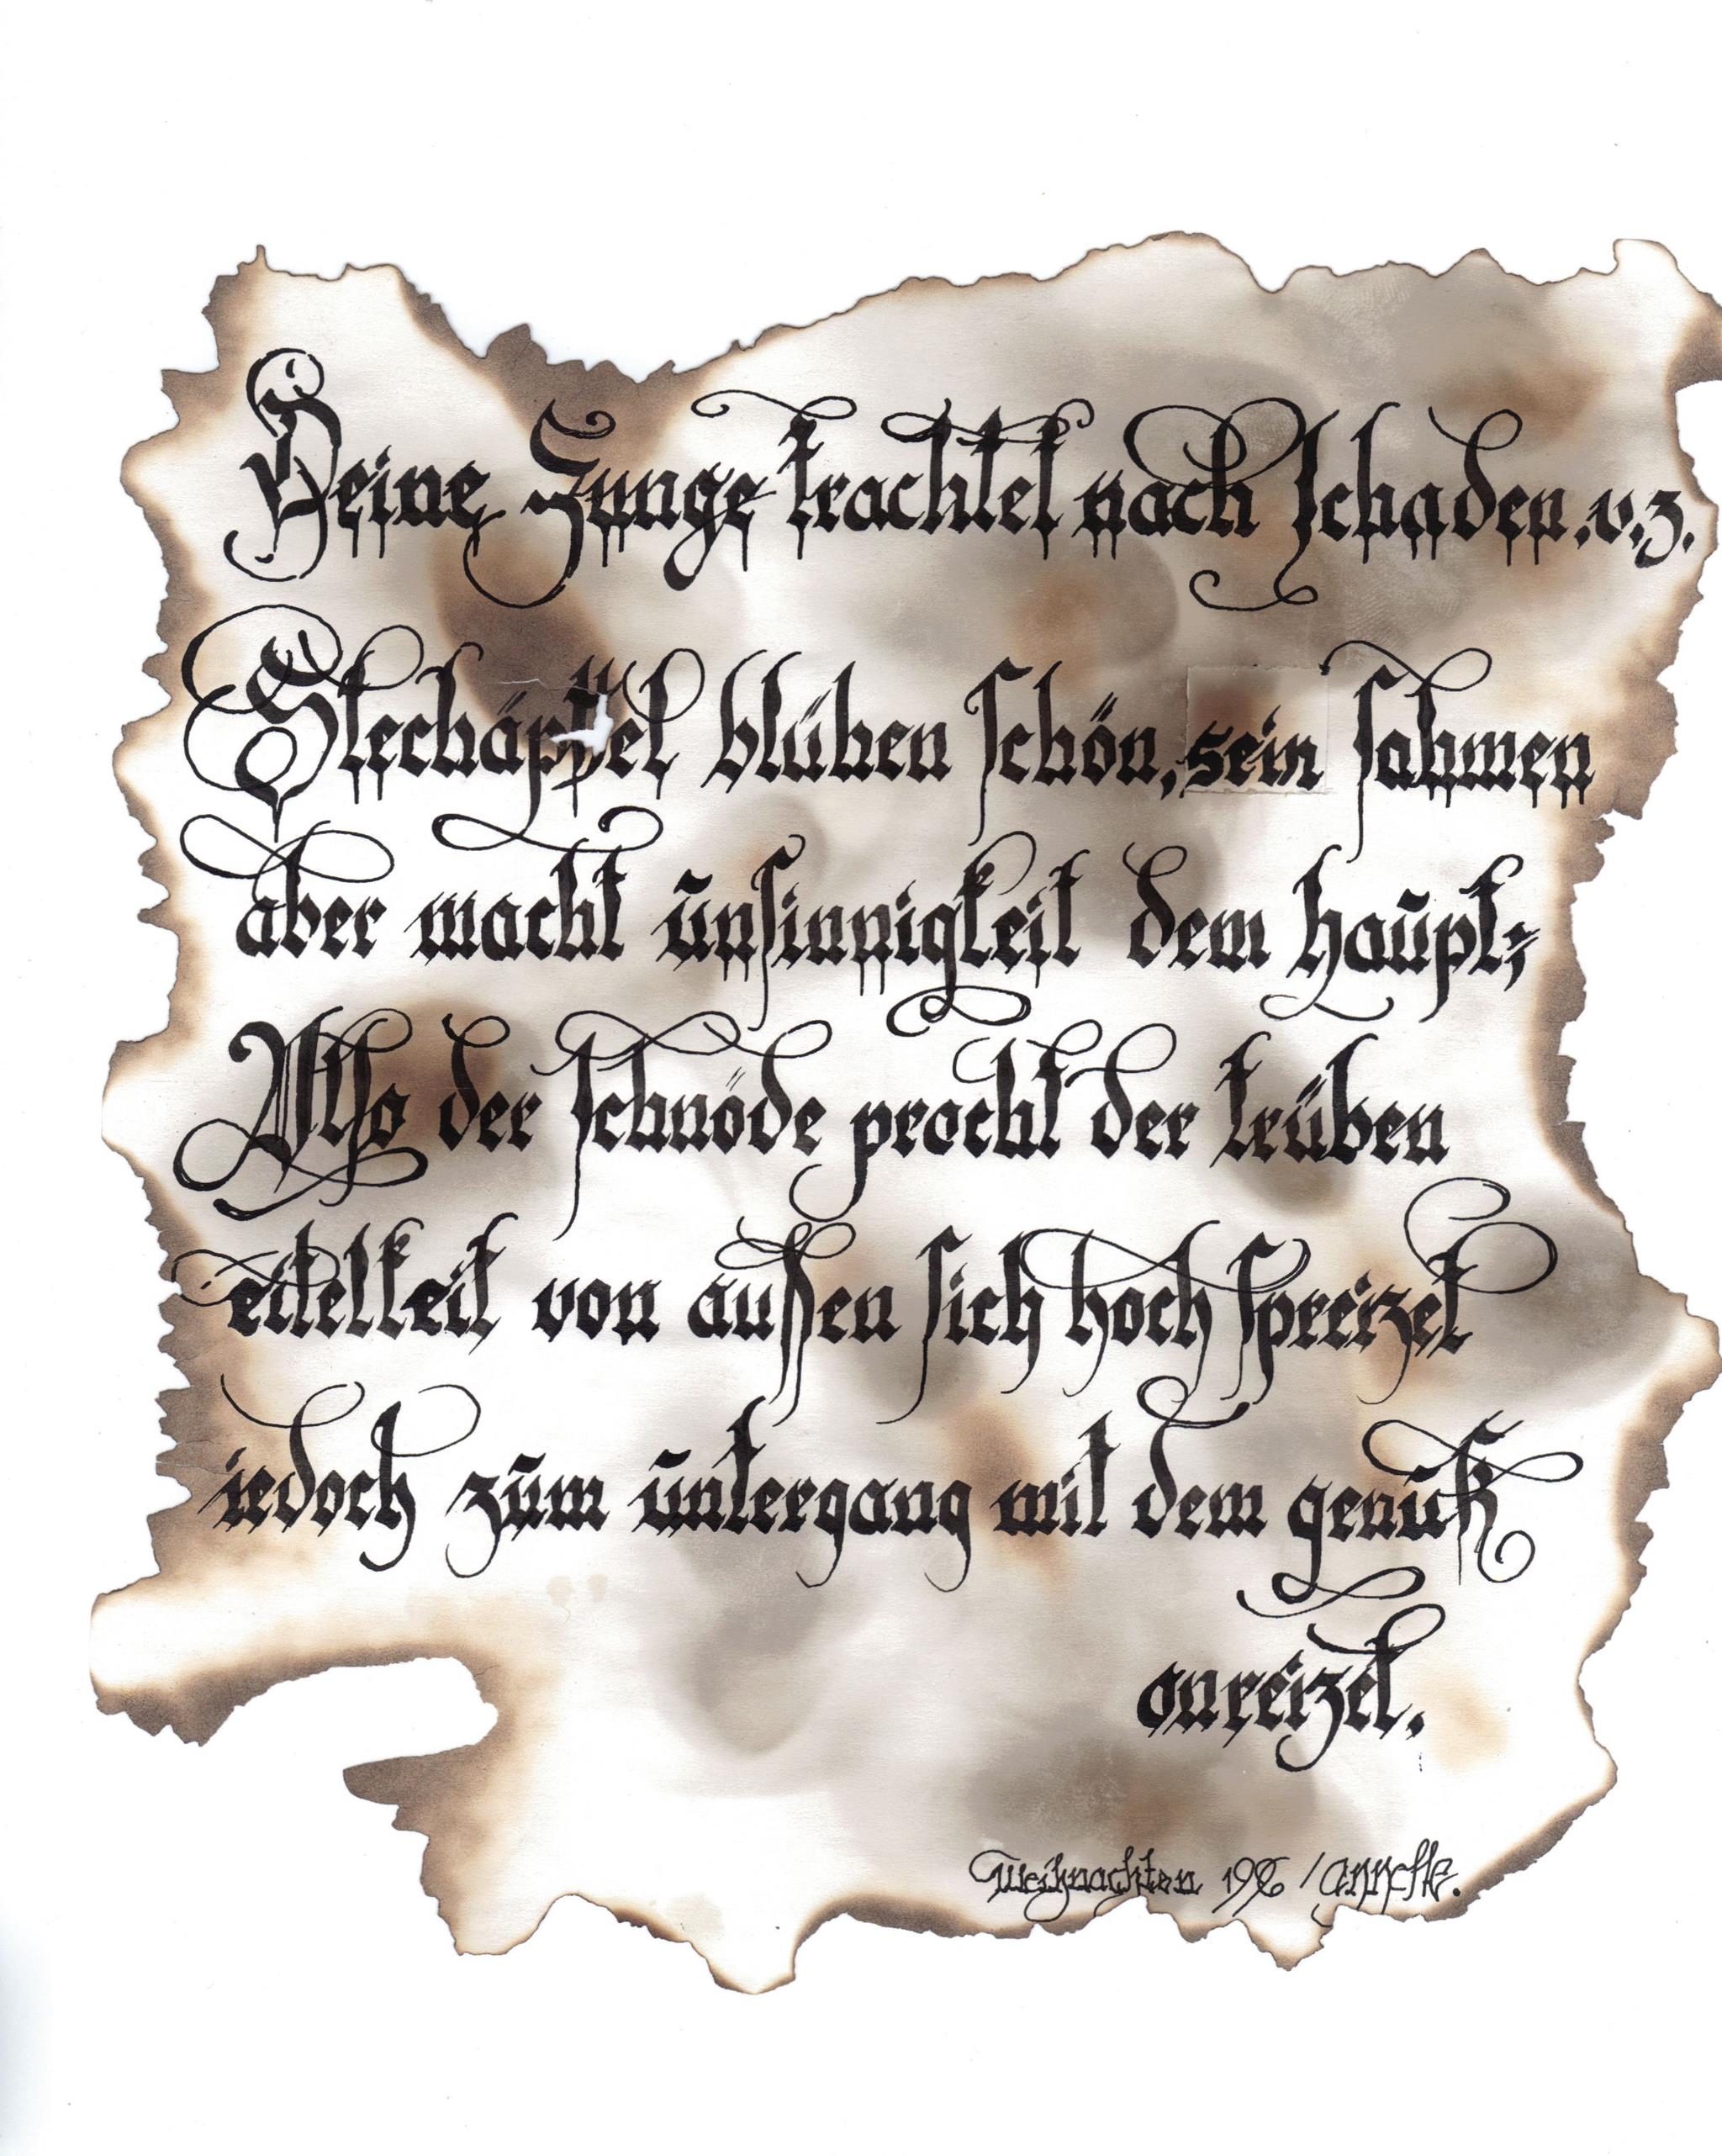 Deine Zunge trachtet nach Schaden. v. 3.
Stechäpffel blühen schön, sein sahmen
aber macht unsinnigkeit dem haupt;
Also der schnöde pracht der trüben
eitelkeit von außen sich hoch spreizet
iedoch zum untergang mit dem genick
anreizet.
Weihnachten 1996 / Annette.